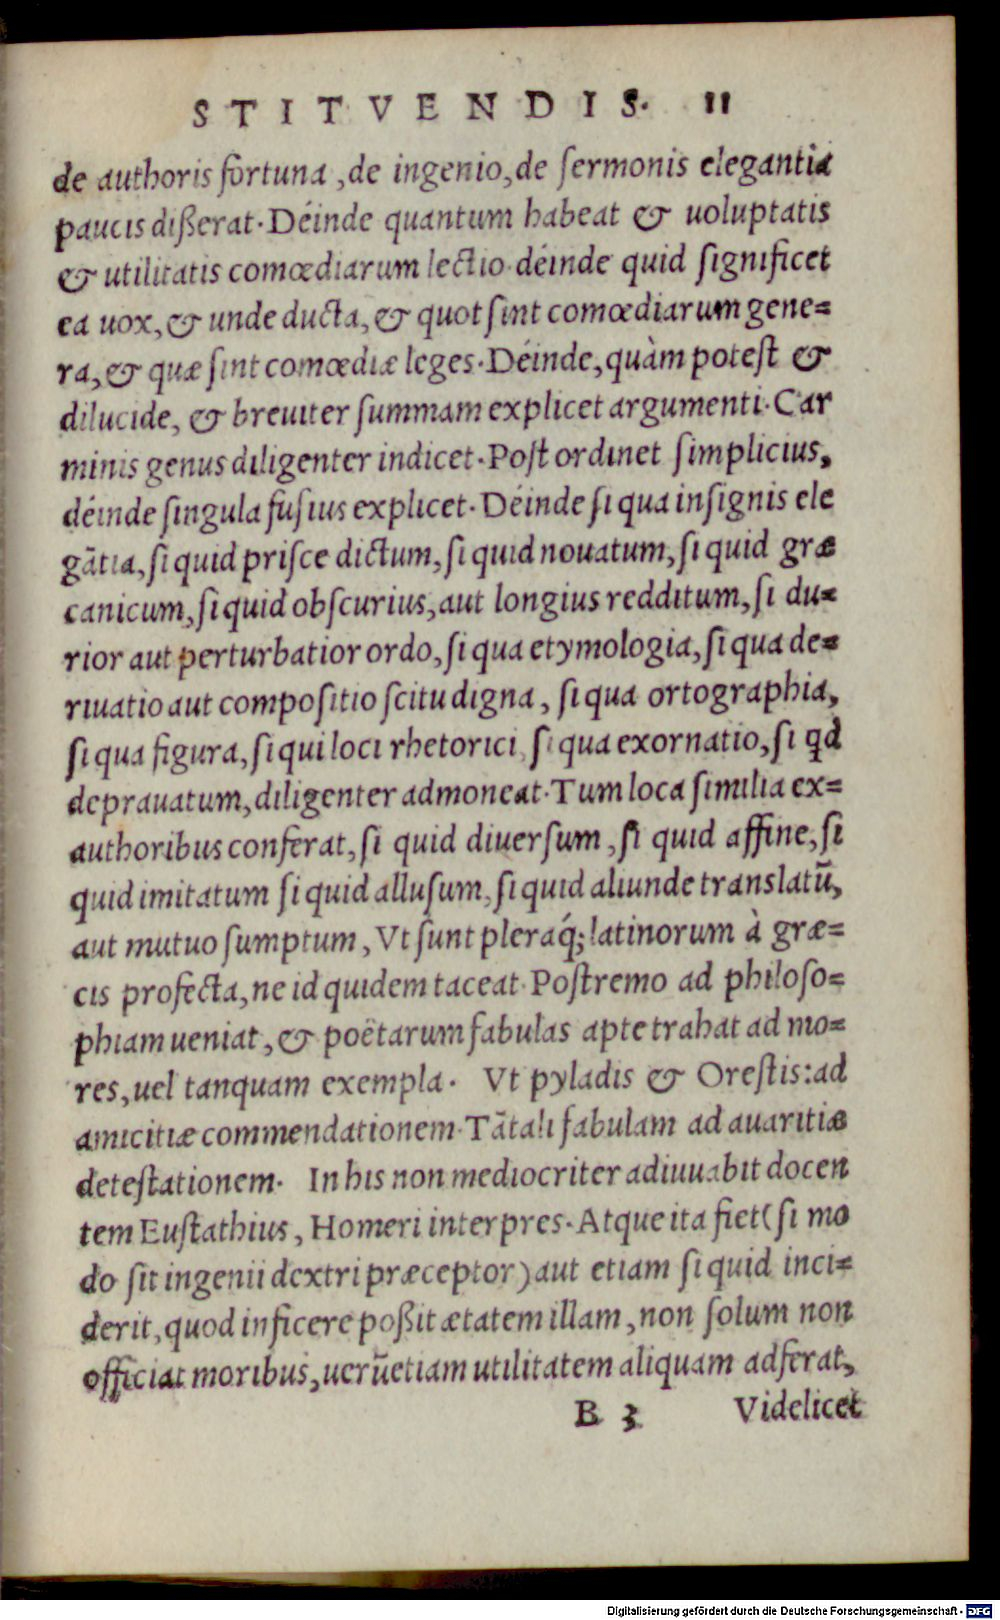 STITVENDIS. 11
de authoris fortuna, de ingenio, de ſermonis elegantia
paucis dißerat. Déinde quantum habeat & uoluptatis
& utilitatis comœdiarum lectio. déinde quid ſignificet
ea uox, & unde ducta, & quot ſint comœdiarum gene=
ra, & quæ ſint comœdiæ leges. Déinde, quàm poteſt &
dilucide, & breuiter ſummam explicet argumenti. Car
minis genus diligenter indicet. Poſt ordinet ſimplicius,
déinde ſingula fuſius explicet. Déinde ſi qua inſignis ele
gātia, ſi quid priſce dictum, ſi quid nouatum, ſi quid græ
canicum, ſi quid obſcurius, aut longius redditum, ſi du=
rior aut perturbatior ordo, ſi qua etymologia, ſi qua de=
riuatio aut compoſitio ſcitu digna, ſi qua ortographia,
ſi qua figura, ſi qui loci rhetorici, ſi qua exornatio, ſi qd
deprauatum, diligenter admoneat. Tum loca ſimilia ex=
authoribus conferat, ſi quid diuerſum, ſi quid affine, ſi
quid imitatum ſi quid alluſum, ſi quid aliunde translatū,
aut mutuo ſumptum, Vt ſunt pleraq́; latinorum à græ=
cis profecta, ne id quidem taceat. Poſtremo ad philoſo=
phiam ueniat, & poëtarum fabulas apte trahat ad mo=
res, uel tanquam exempla. Vt pyladis & Oreſtis: ad
amicitiæ commendationem. Tātali fabulam ad auaritiæ
deteſtationem. In his non mediocriter adiuuabit docen
tem Euſtathius, Homeri interpres. Atque ita fiet (ſi mo
do ſit ingenii dextri præceptor) aut etiam ſi quid inci=
derit, quod inficere poßit ætatem illam, non ſolum non
officiat moribus, uerūetiam utilitatem aliquam adferat,
B 3 Videlicet
Digitalisierung gefördert durch die Deutsche Forschungsgemeinschaft - DFG